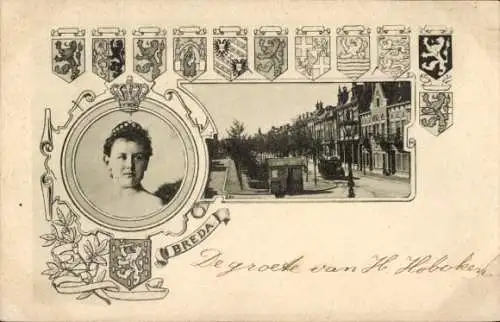 BREDA
De groete van H. Hoboken